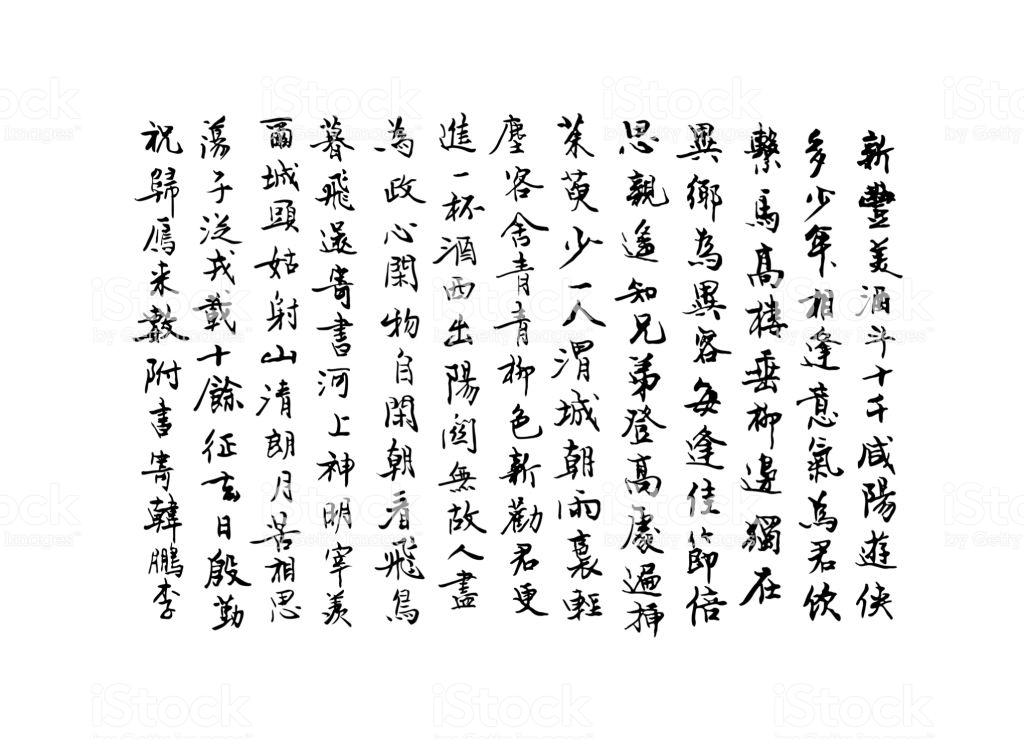 新豐美酒斗十千咸陽遊俠
多少年相逢意氣為君飲
繫馬高樓垂柳邊獨在
異鄉為異客每逢佳節倍
思親遙知兄弟登高處遍插
茱萸少一人渭城朝雨裛輕
塵客舍青青柳色新勸君更
進一杯酒西出陽關無故人盡
為政心閑物自閑朝看飛鳥
暮飛還寄書河上神明宰羨
爾城頭姑射山清朗月苦相思
蕩子從戎載十餘征去日殷勤
祝歸鴈来數附書寄韓鵬李
iStock
by Getty Images™